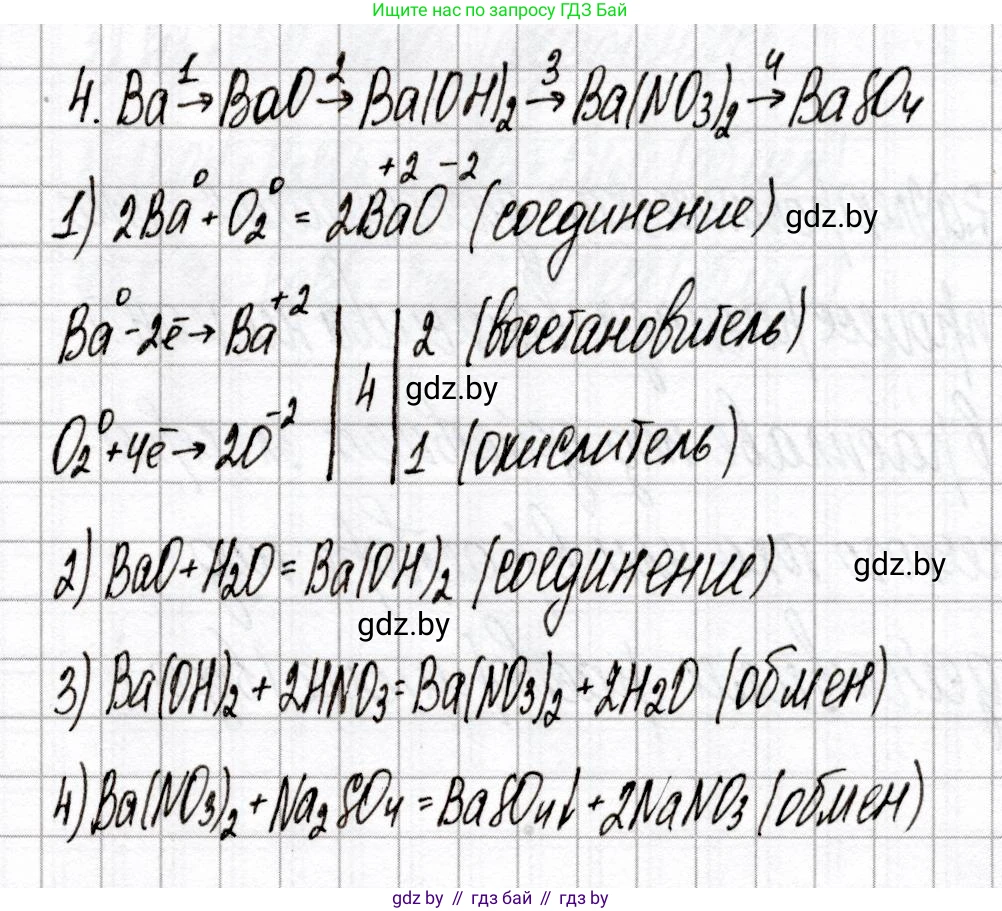 Ищите нас по запросу ГДЗ Бай
4. Ba 1→ BaO 2→ Ba(OH)₂ 3→ Ba(NO₃)₂ 4→ BaSO₄
1) 2Ba⁰ + O₂⁰ = 2Ba⁺²O⁻² (соединение) gdz.by
Ba⁰ - 2ē → Ba⁺² | 4 | 2 (восстановитель)
gdz.by
O₂⁰ + 4ē → 2O⁻² | 1 (окислитель)
2) BaO + H₂O = Ba(OH)₂ (соединение) gdz.by
gdz.by
3) Ba(OH)₂ + 2HNO₃ = Ba(NO₃)₂ + 2H₂O (обмен)
4) Ba(NO₃)₂ + Na₂SO₄ = BaSO₄↓ + 2NaNO₃ (обмен)
gdz.by // гдз бай // гдз.by